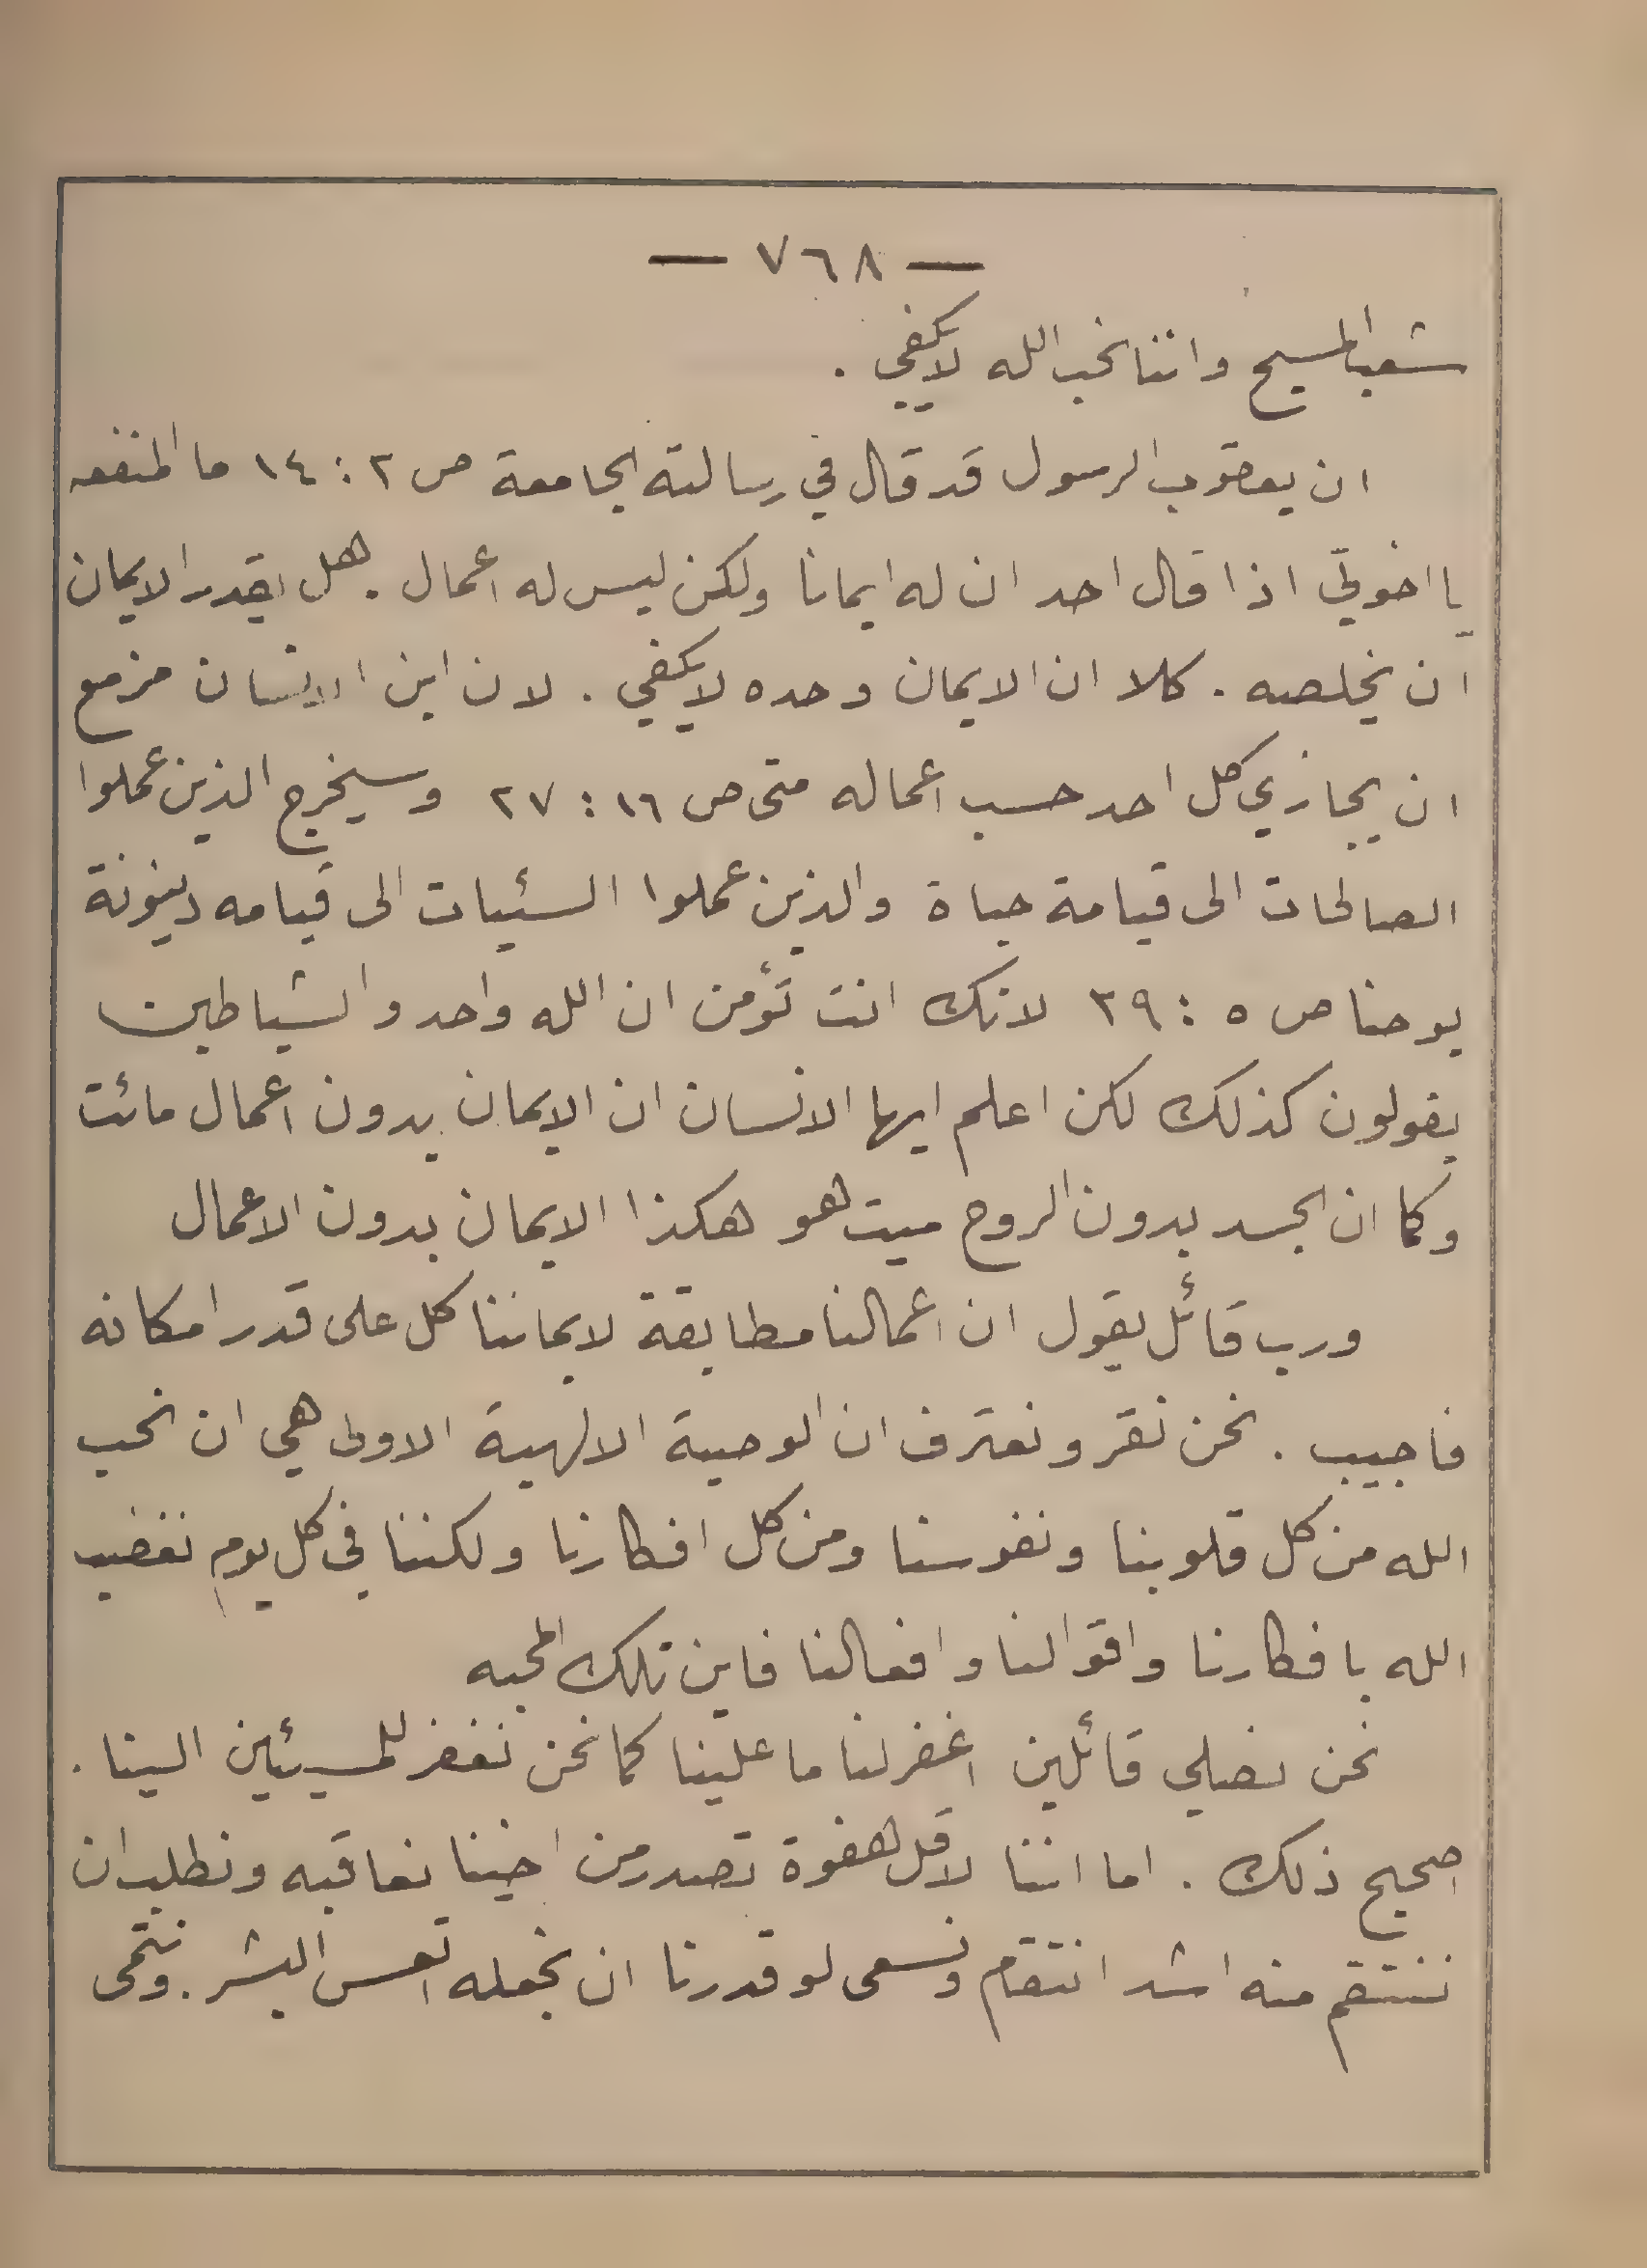 — ٧٦٨ —
شعب المسيح واننا نحب الله لا يكفي .
ان يعقوب الرسول قد قال في رسالته الجامعة ص ٢ : ١٤ ما المنفعه
يا اخوتي اذا قال احد ان له ايمانا ولكن ليس له اعمال . هل يقدر الايمان
ان يخلصه . كلا ان الايمان وحده لا يكفي . لان ابن الانسان مزمع
ان يجازي كل احد حسب اعماله متى ص ١٦ : ٢٧ وسيخرج الذين عملوا
الصالحات الى قيامة حياة والذين عملوا السئيات الى قيامه دينونة
يوحنا ص ٥ : ٢٩ لانك انت تؤمن ان الله واحد والشياطين
يقولون كذلك لكن اعلم ايها الانسان ان الايمان بدون اعمال مائت
وكما ان الجسد بدون الروح ميت هو هكذا الايمان بدون الاعمال
ورب قائل يقول ان اعمالنا مطابقة لايماننا كل على قدر امكانه
فاجيب . نحن نقر ونعترف ان الوصية الالهية الاولى هي ان نحب
الله من كل قلوبنا ونفوسنا ومن كل افكارنا ولكننا في كل يوم نغضب
الله بافكارنا واقوالنا وافعالنا فاين تلك المحبه
نحن نصلي قائلين اغفر لنا ما علينا كما نحن نغفر للمسيئين الينا .
اصحيح ذلك . اما اننا لاقل هفوة تصدر من اخينا نعاقبه ونطلب ان
ننتقم منه اشد انتقام ونسعى لو قدرنا ان نجعله اتعس البشر . ونتمى